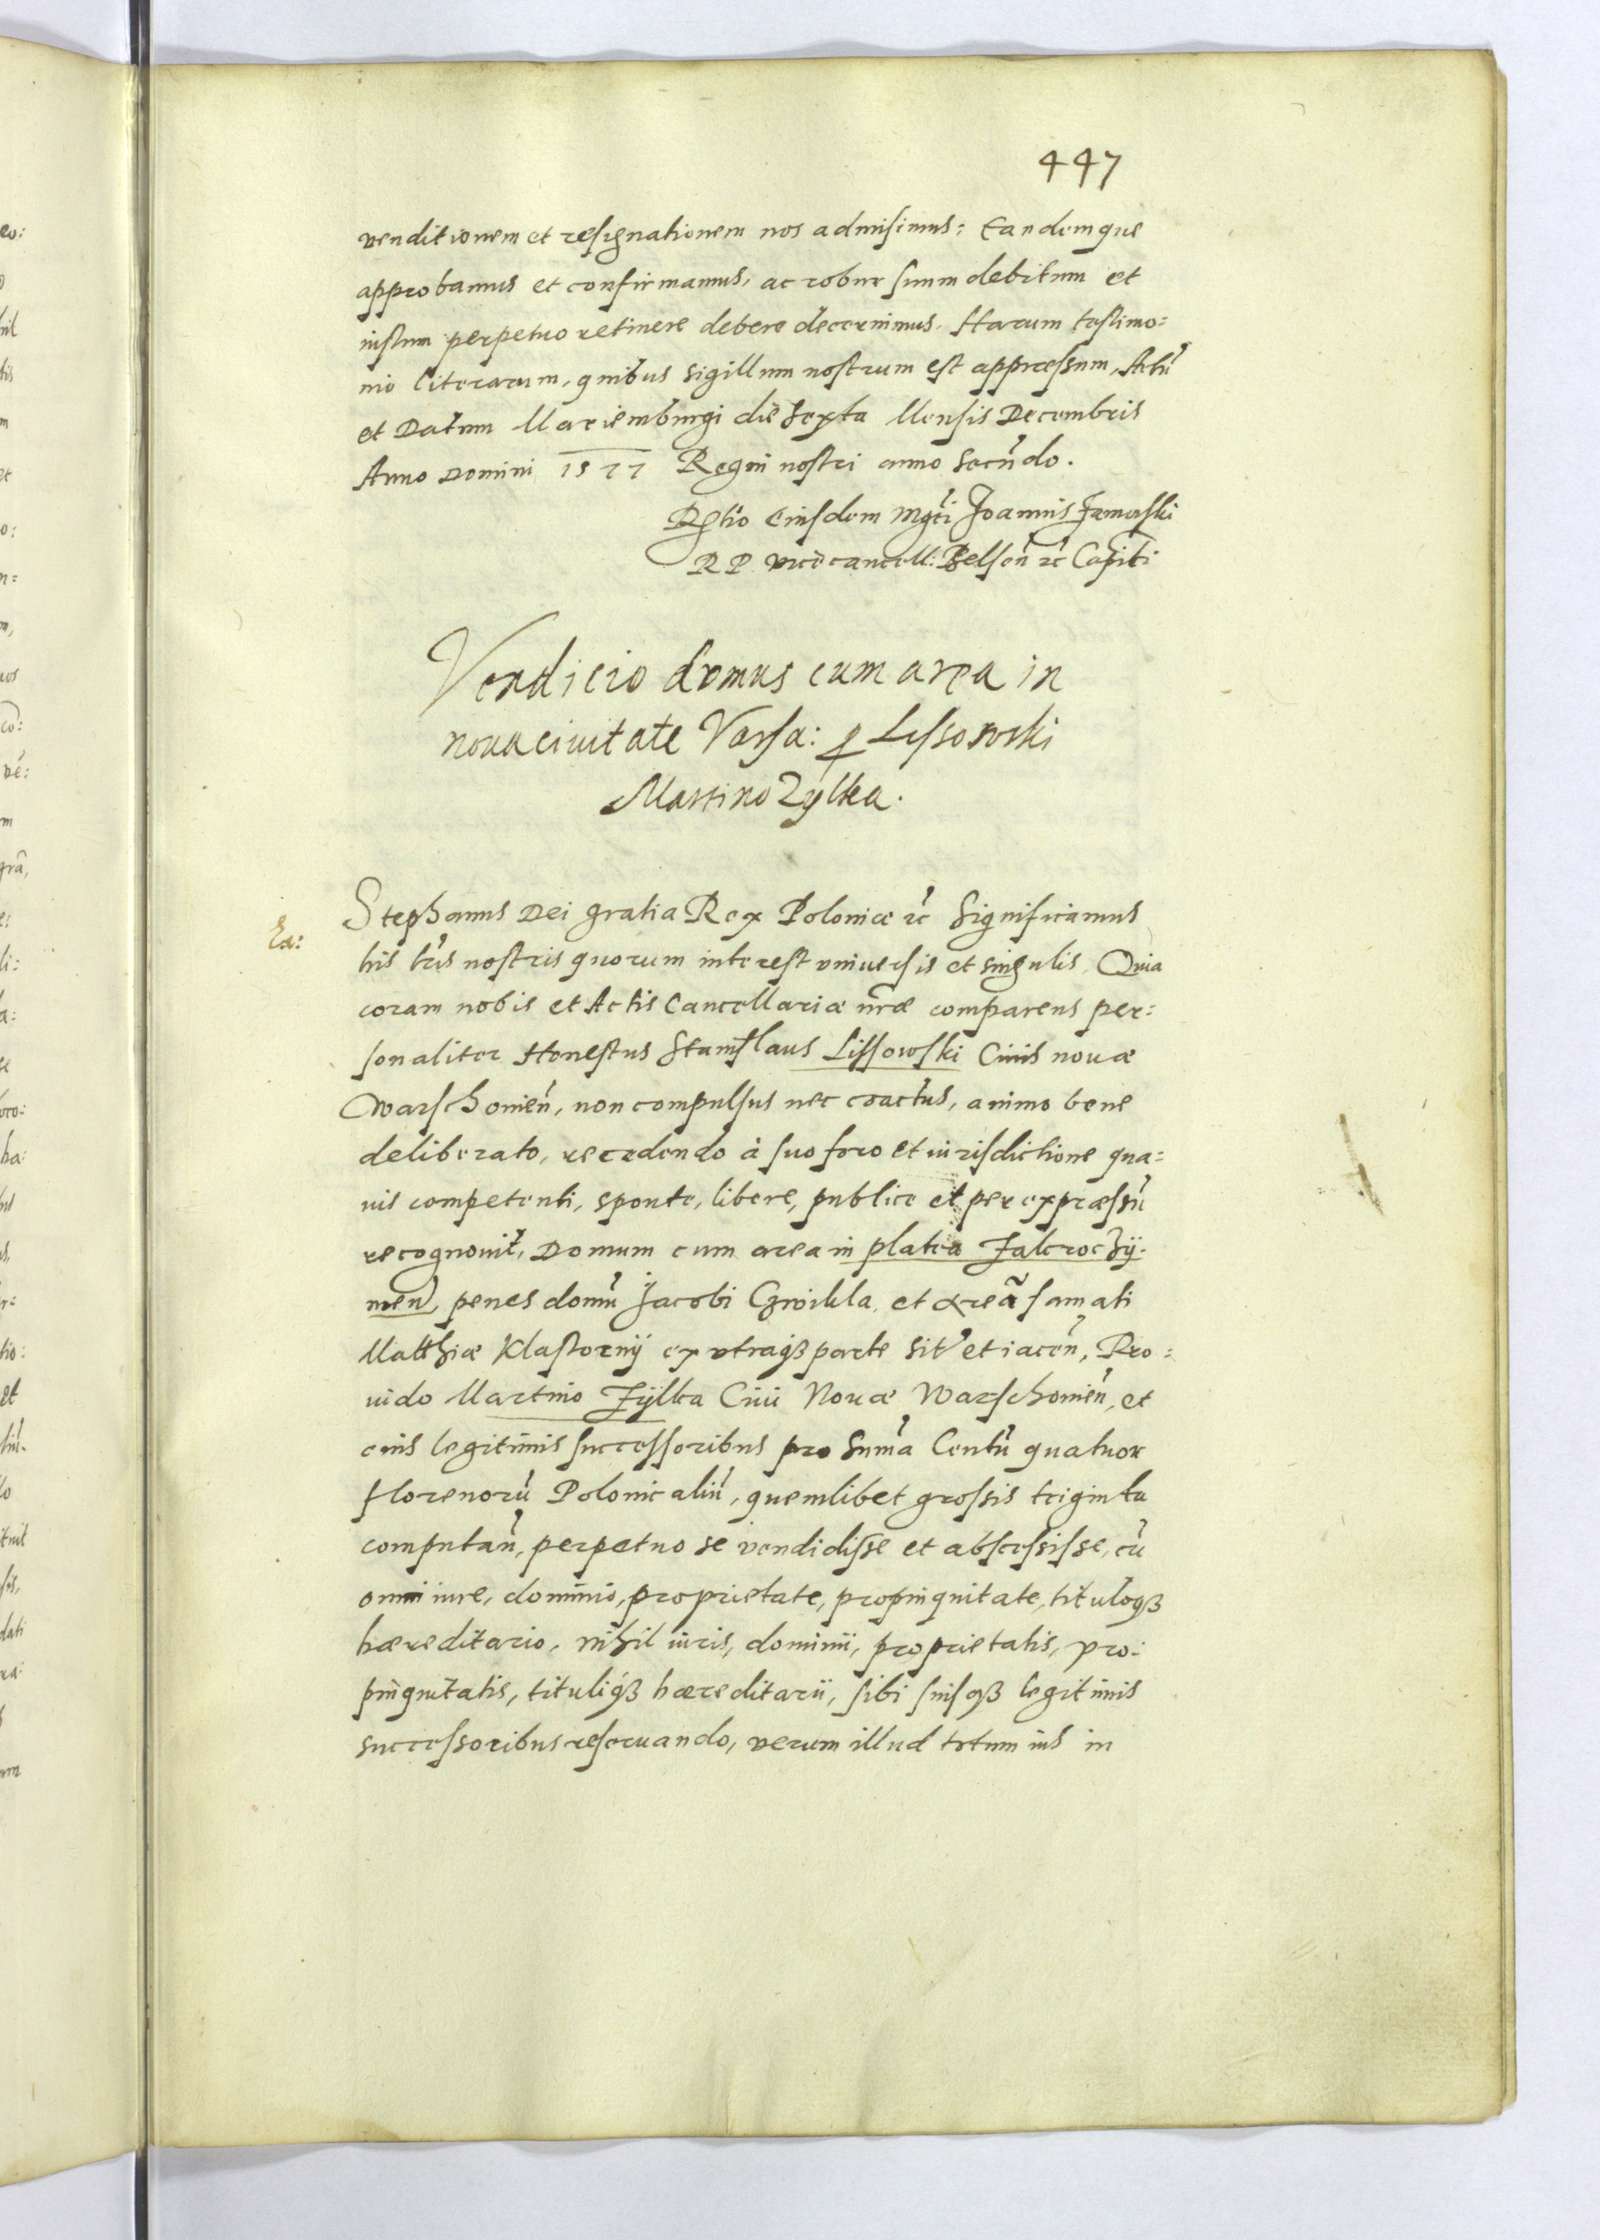 447
venditionem et resignationem nos admisimus: Eandemque
approbamus et confirmamus, ac robur suum debitum et
iustum perpetuo retinere debere decernimus. Harum testimo:
nio literarum, quibus sigillum nostrum est appressum, Actũ
et Datum Mariemburgi die Sexta Mensis Decembris
Anno Domini 1577 Regni nostri anno Secũdo.
Rltio Eiusdem Mgci Joannis Zamoiski
R P vicecancell: Belsen̄ zc Capiti
Vendicio domus cum area in
noua ciuitate Varsa: p Lissowski
Martino Zylka.
Ea:
Stephanus Dei gratia Rex Poloniæ zc Significamus
his lr̄is nostris quorum interest vniuersis et singulis, Quia
coram nobis et Actis Cancellariæ nr̄æ comparens per:
sonaliter Honestus Stanislaus Lissowski Ciuis nouæ
Warschouien̄, non compulsus nec coactus, animo bene
deliberato, recedendo à suo foro et iurisdictione qua:
uis competenti, sponte, libere, publice et per expræssũ
recognouit, Domum cum area in platea Zakroczÿ:
mien̄, penes domũ Jacobi Gwikla, et areã famati
Matthiæ Klastornÿ ex vtraqȝ parte sit̄ et iacen̄, Pro:
uido Martino Zÿlka Ciui Nouæ Warschouien̄, et
eius legitimis successoribus pro Sum̄a Centũ quatuor
florenorũ Polonicaliũ, quemlibet grossis triginta
computan̄, perpetuo se vendidisse et abscessisse, cũ
omni iure, dominio, proprietate, propinquitate, tituloqȝ
hæreditario, nihil iuris, dominii, proprietatis, pro:
pinquitatis, tituliqȝ hæreditarii, sibi suisqȝ legitimis
successoribus reseruando, verum illud totum ius in